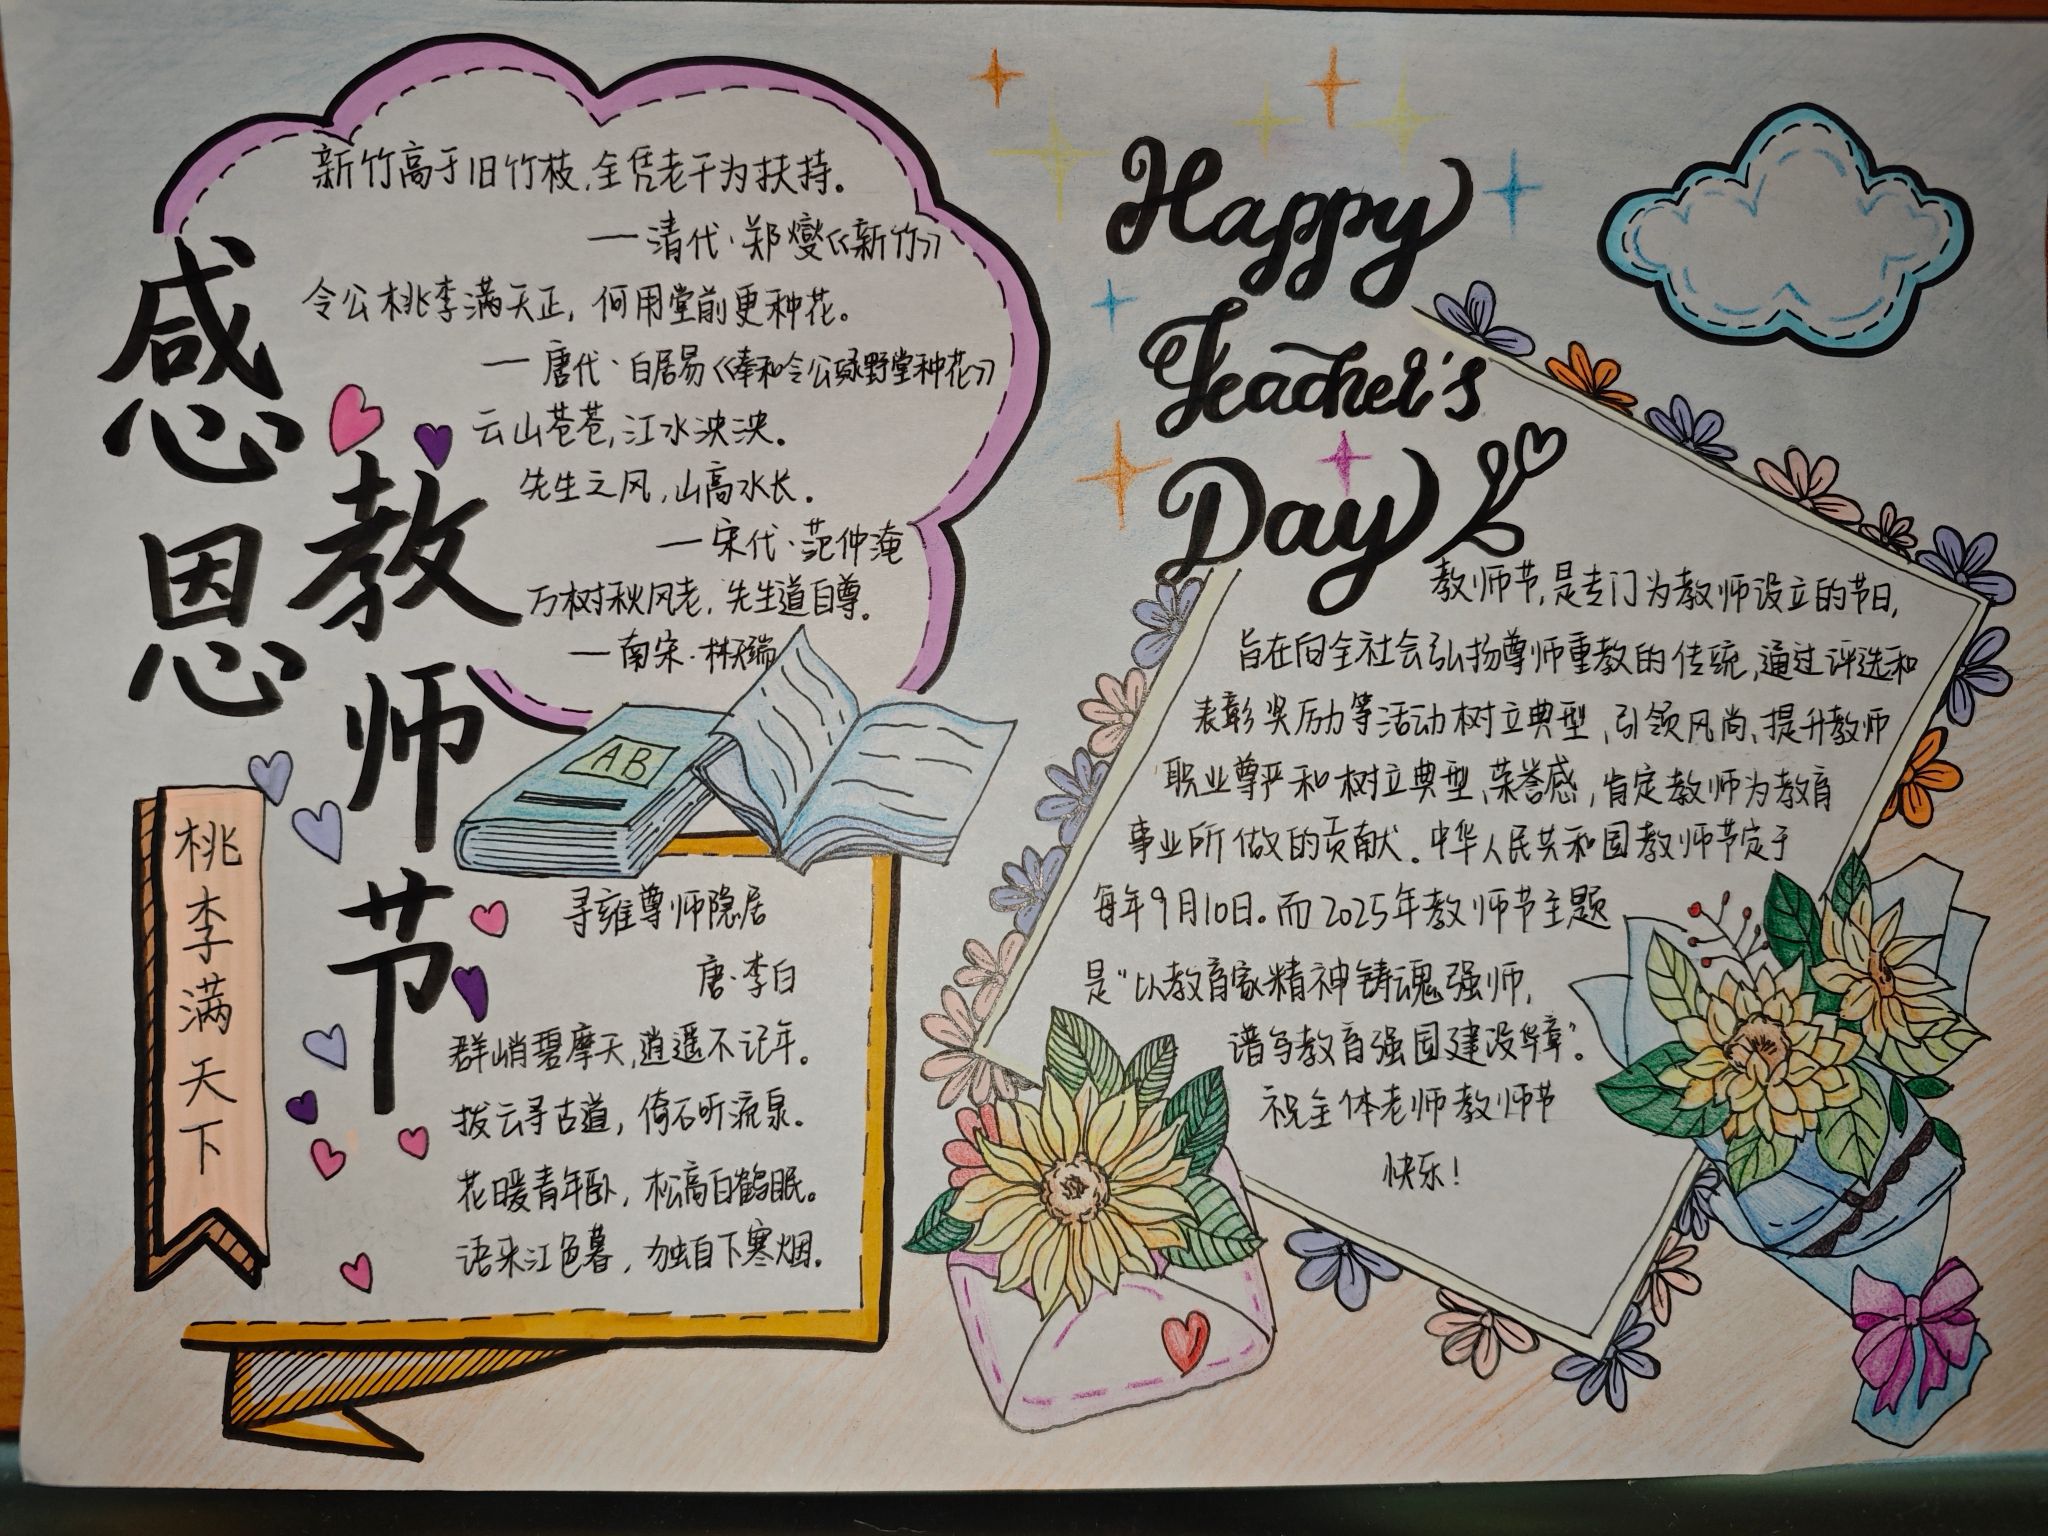 感恩
教师节
新竹高于旧竹枝,全凭老干为扶持。
——清代·郑燮《新竹》
令公桃李满天正，何用堂前更种花。
——唐代·白居易《奉和令公绿野堂种花》
云山苍苍,江水泱泱。
先生之风,山高水长。
——宋代·范仲淹
万树秋风老,先生道自尊。
——南宋·林天瑞
AB
桃李满天下
寻雍尊师隐居
唐·李白
群峭碧摩天,逍遥不记年。
拨云寻古道，倚石听流泉。
花暖青年卧，松高白鹤眠。
语来江色暮，独自下寒烟。
Happy
Teacher's
Day
教师节,是专门为教师设立的节日,
旨在向全社会弘扬尊师重教的传统,通过评选和
表彰奖厉力等活动树立典型、引领风尚、提升教师
职业尊严和树立典型、荣誉感，肯定教师为教育
事业所做的贡献。中华人民共和国教师节定于
每年9月10日。而2025年教师节主题
是“以教育家精神铸魂强师,
谱写教育强国建设华章”。
祝全体老师教师节
快乐！